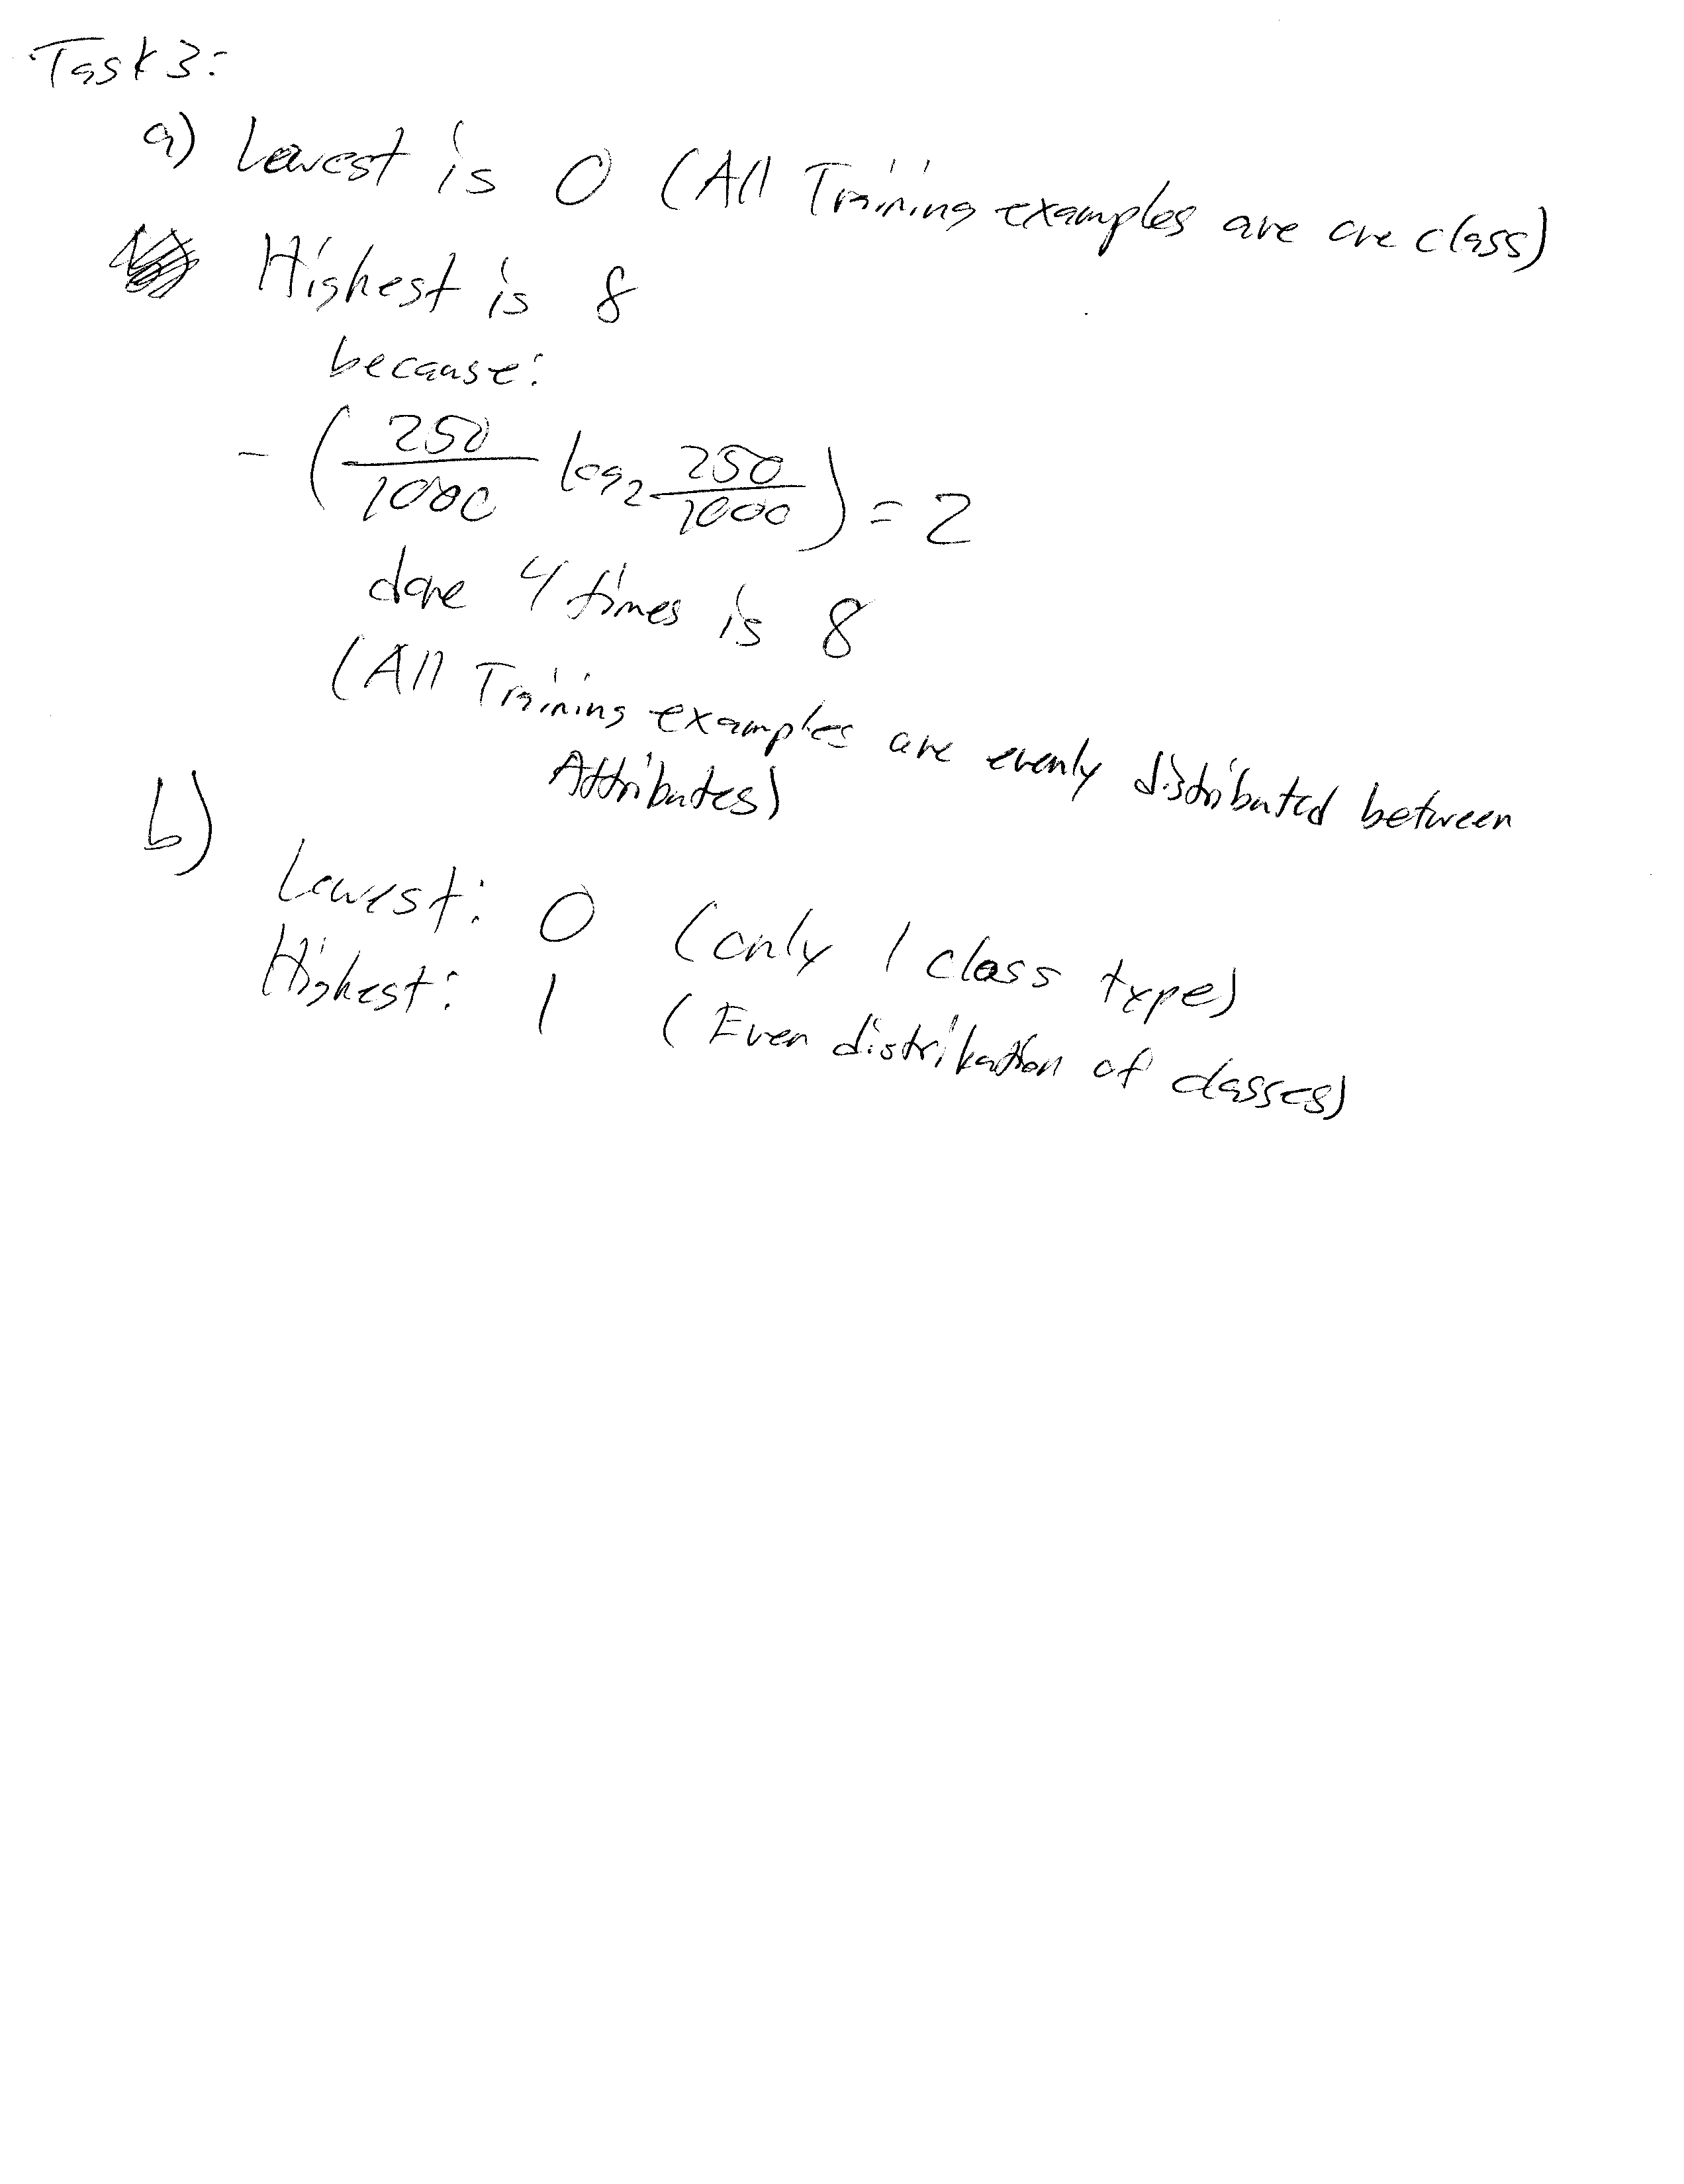 Task 3:
a) Lowest is 0 (All Training examples are one class)
Highest is 8
because:
- ( 250/1000 log₂ 250/1000 ) = 2
done 4 times is 8
(All Training examples are evenly distributed between
Attributes)
b)
Lowest: 0 (only 1 class type)
Highest: 1 (Even distribution of classes)